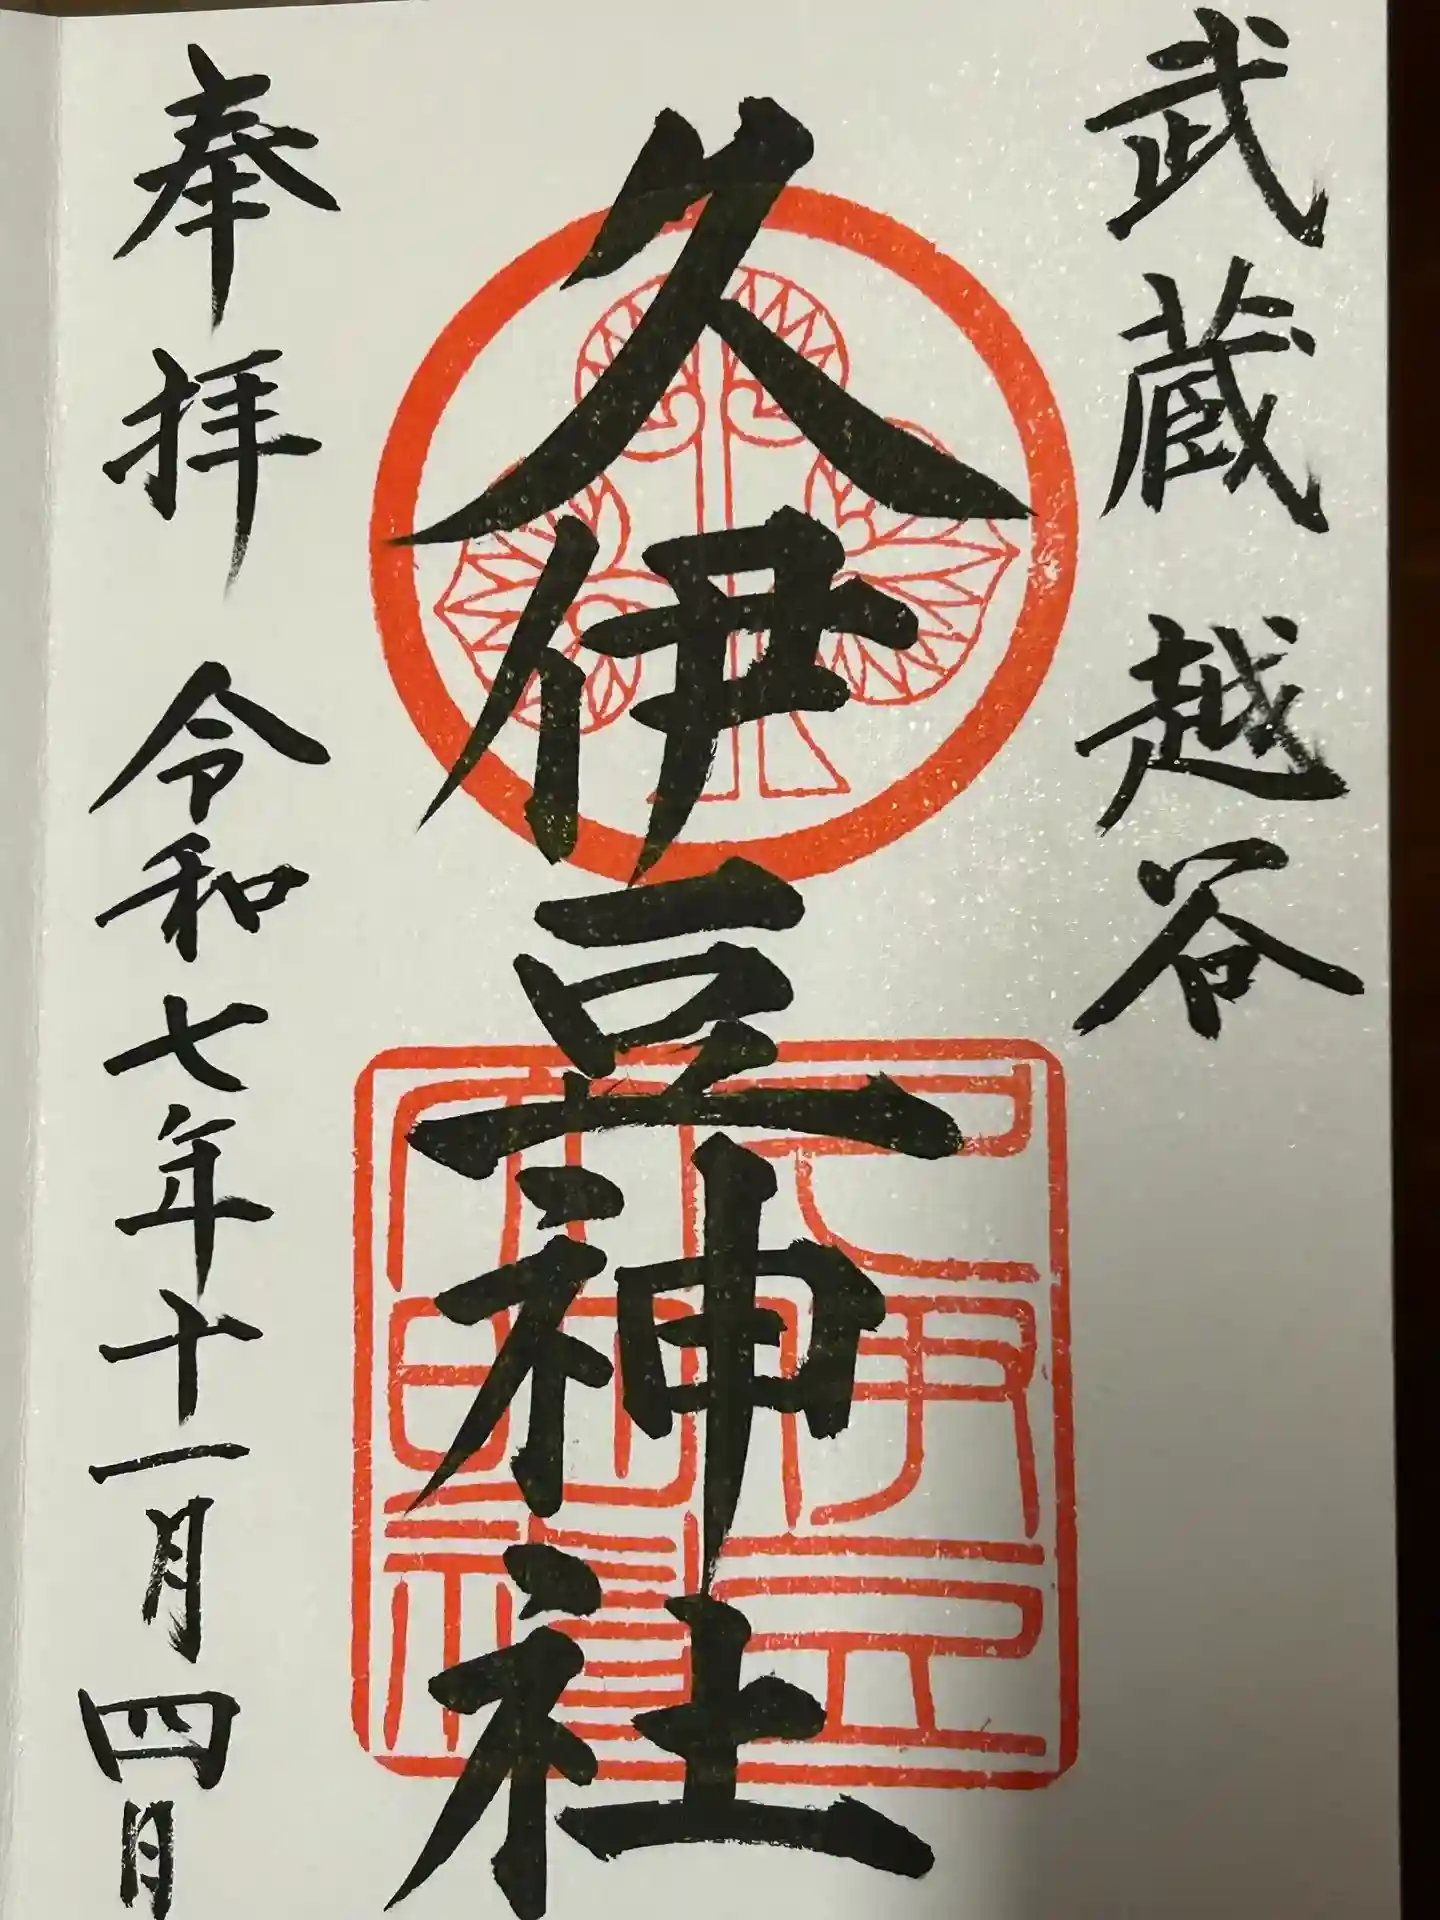 武蔵 越谷
久伊豆神社
奉拝 令和七年十一月四日